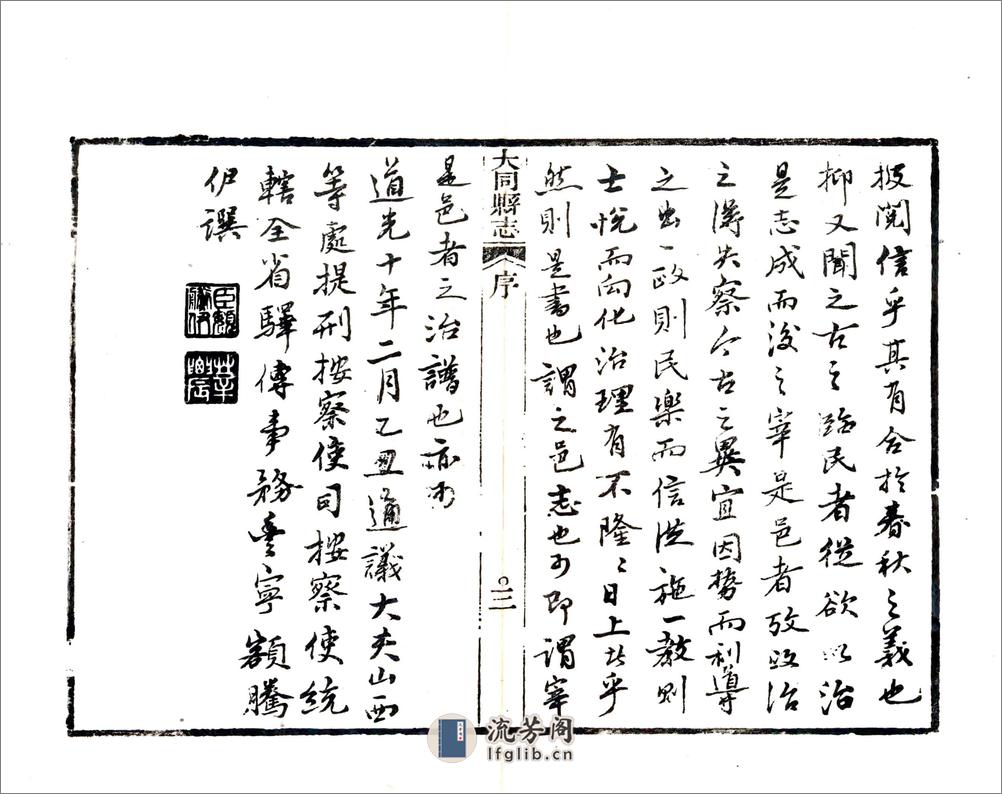 披閱信乎其有合於春秋之義也
抑又聞之古之臨民者從欲以治
是志成而後之宰是邑者攷政治
之得失察今古之異宜因勢而利導
之出一政則民樂而信從施一教則
士悅而向化治理有不隆隆日上者乎
然則是書也謂之邑志也可即謂宰
大同縣志
序
三
是邑者之治譜也亦可
道光十年二月乙丑通議大夫山西
等處提刑按察使司按察使統
轄全省驛傳事務豐寧額騰
伊譔
流芳阁
lfglib.cn